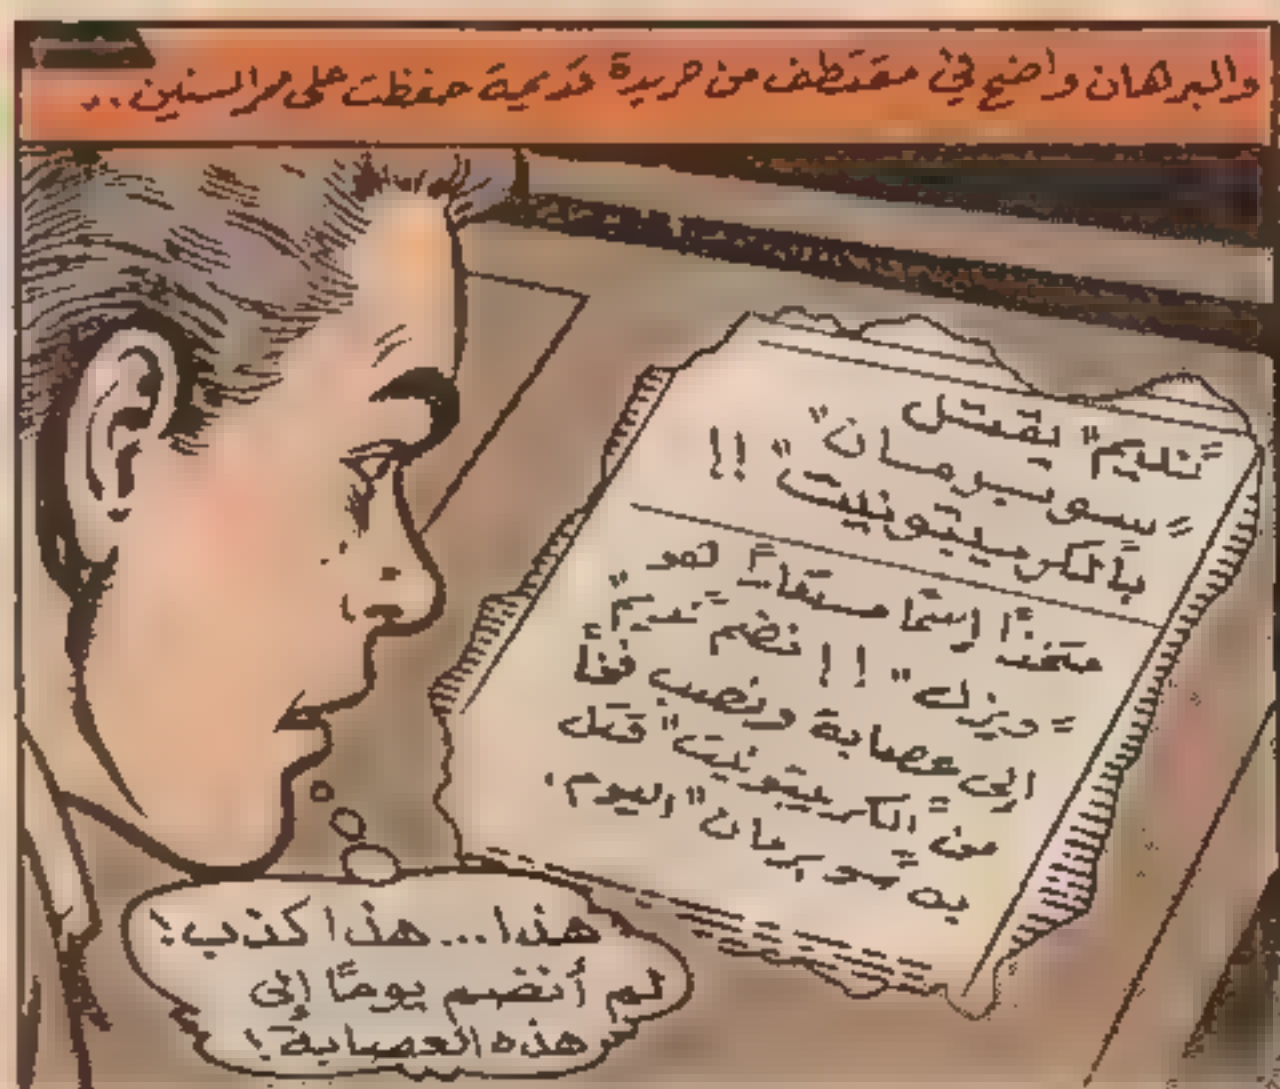 والبرهان واضح في مقتطف من جريدة قديمة حفظت على مر السنين..
"نديم" يقتل
"سوبرمان"
بالكريبتونيت" !!
متخذًا اسمًا مستعارًا لهو
"ديزل" !! نضم نديم"
الى عصابة ونصب فخًا
من "الكريبتونيت" قتل
به "سوبرمان" اليوم.
هذا... هذا كذب!
لم أنضم يومًا إلى
هذه العصابة!